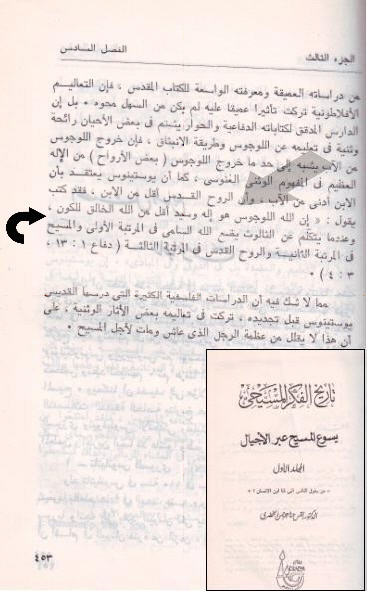 الجزء الثالث
الفصل السادس
من دراساته العميقة ومعرفته الواسعة للكتاب المقدس ، فإن التعاليم
الأفلاطونية تركت تأثيرا عميقا عليه لم يكن من السهل محوه • بل إن
الدارس المدقق لكتاباته الدفاعية والحوار يشتم فى بعض الأحيان رائحة
وثنية فى تعليمه عن اللوجوس وطريقة الانبثاق ، فإن خروج اللوجوس
من الله يشبه إلى حد ما خروج اللوجوس ( بعض الأرواح ) من الإله
العظيم فى المفهوم الوثنى الغنوسى ، كما أن يوستينوس يعتقد بأن
الابن أدنى من الآب ، وأن الروح القدس أقل من الابن • فقد كتب
يقول : « إن الله اللوجوس هو إله وسيد أقل من الله الخالق للكون ،
وعندما يتكلم عن الثالوث يضع الله السامى فى المرتبة الأولى والمسيح
فى المرتبة الثانيـة والروح القدس فى المرتبة الثالثـة ( دفاع ١ : ١٣ ،
٣ : ٤ ) •
مما لا شك فيه أن الدراسات الفلسفية الكثيرة التى درسها القديس
يوستينوس قبل تجديده ، تركت فى تعاليمه بعض الآثار الوثنية ، على
أن هذا لا يقلل من عظمة الرجل الذى عاش ومات لأجل المسيح •
تاريخ الفكر المسيحى
يسوع المسيح عبر الأجيال
المجلد الأول
« من يقول الناس إنى أنا ابن الإنسان ؟ »
الدكتور القس حنا جرجس الخضرى
٤٥٣